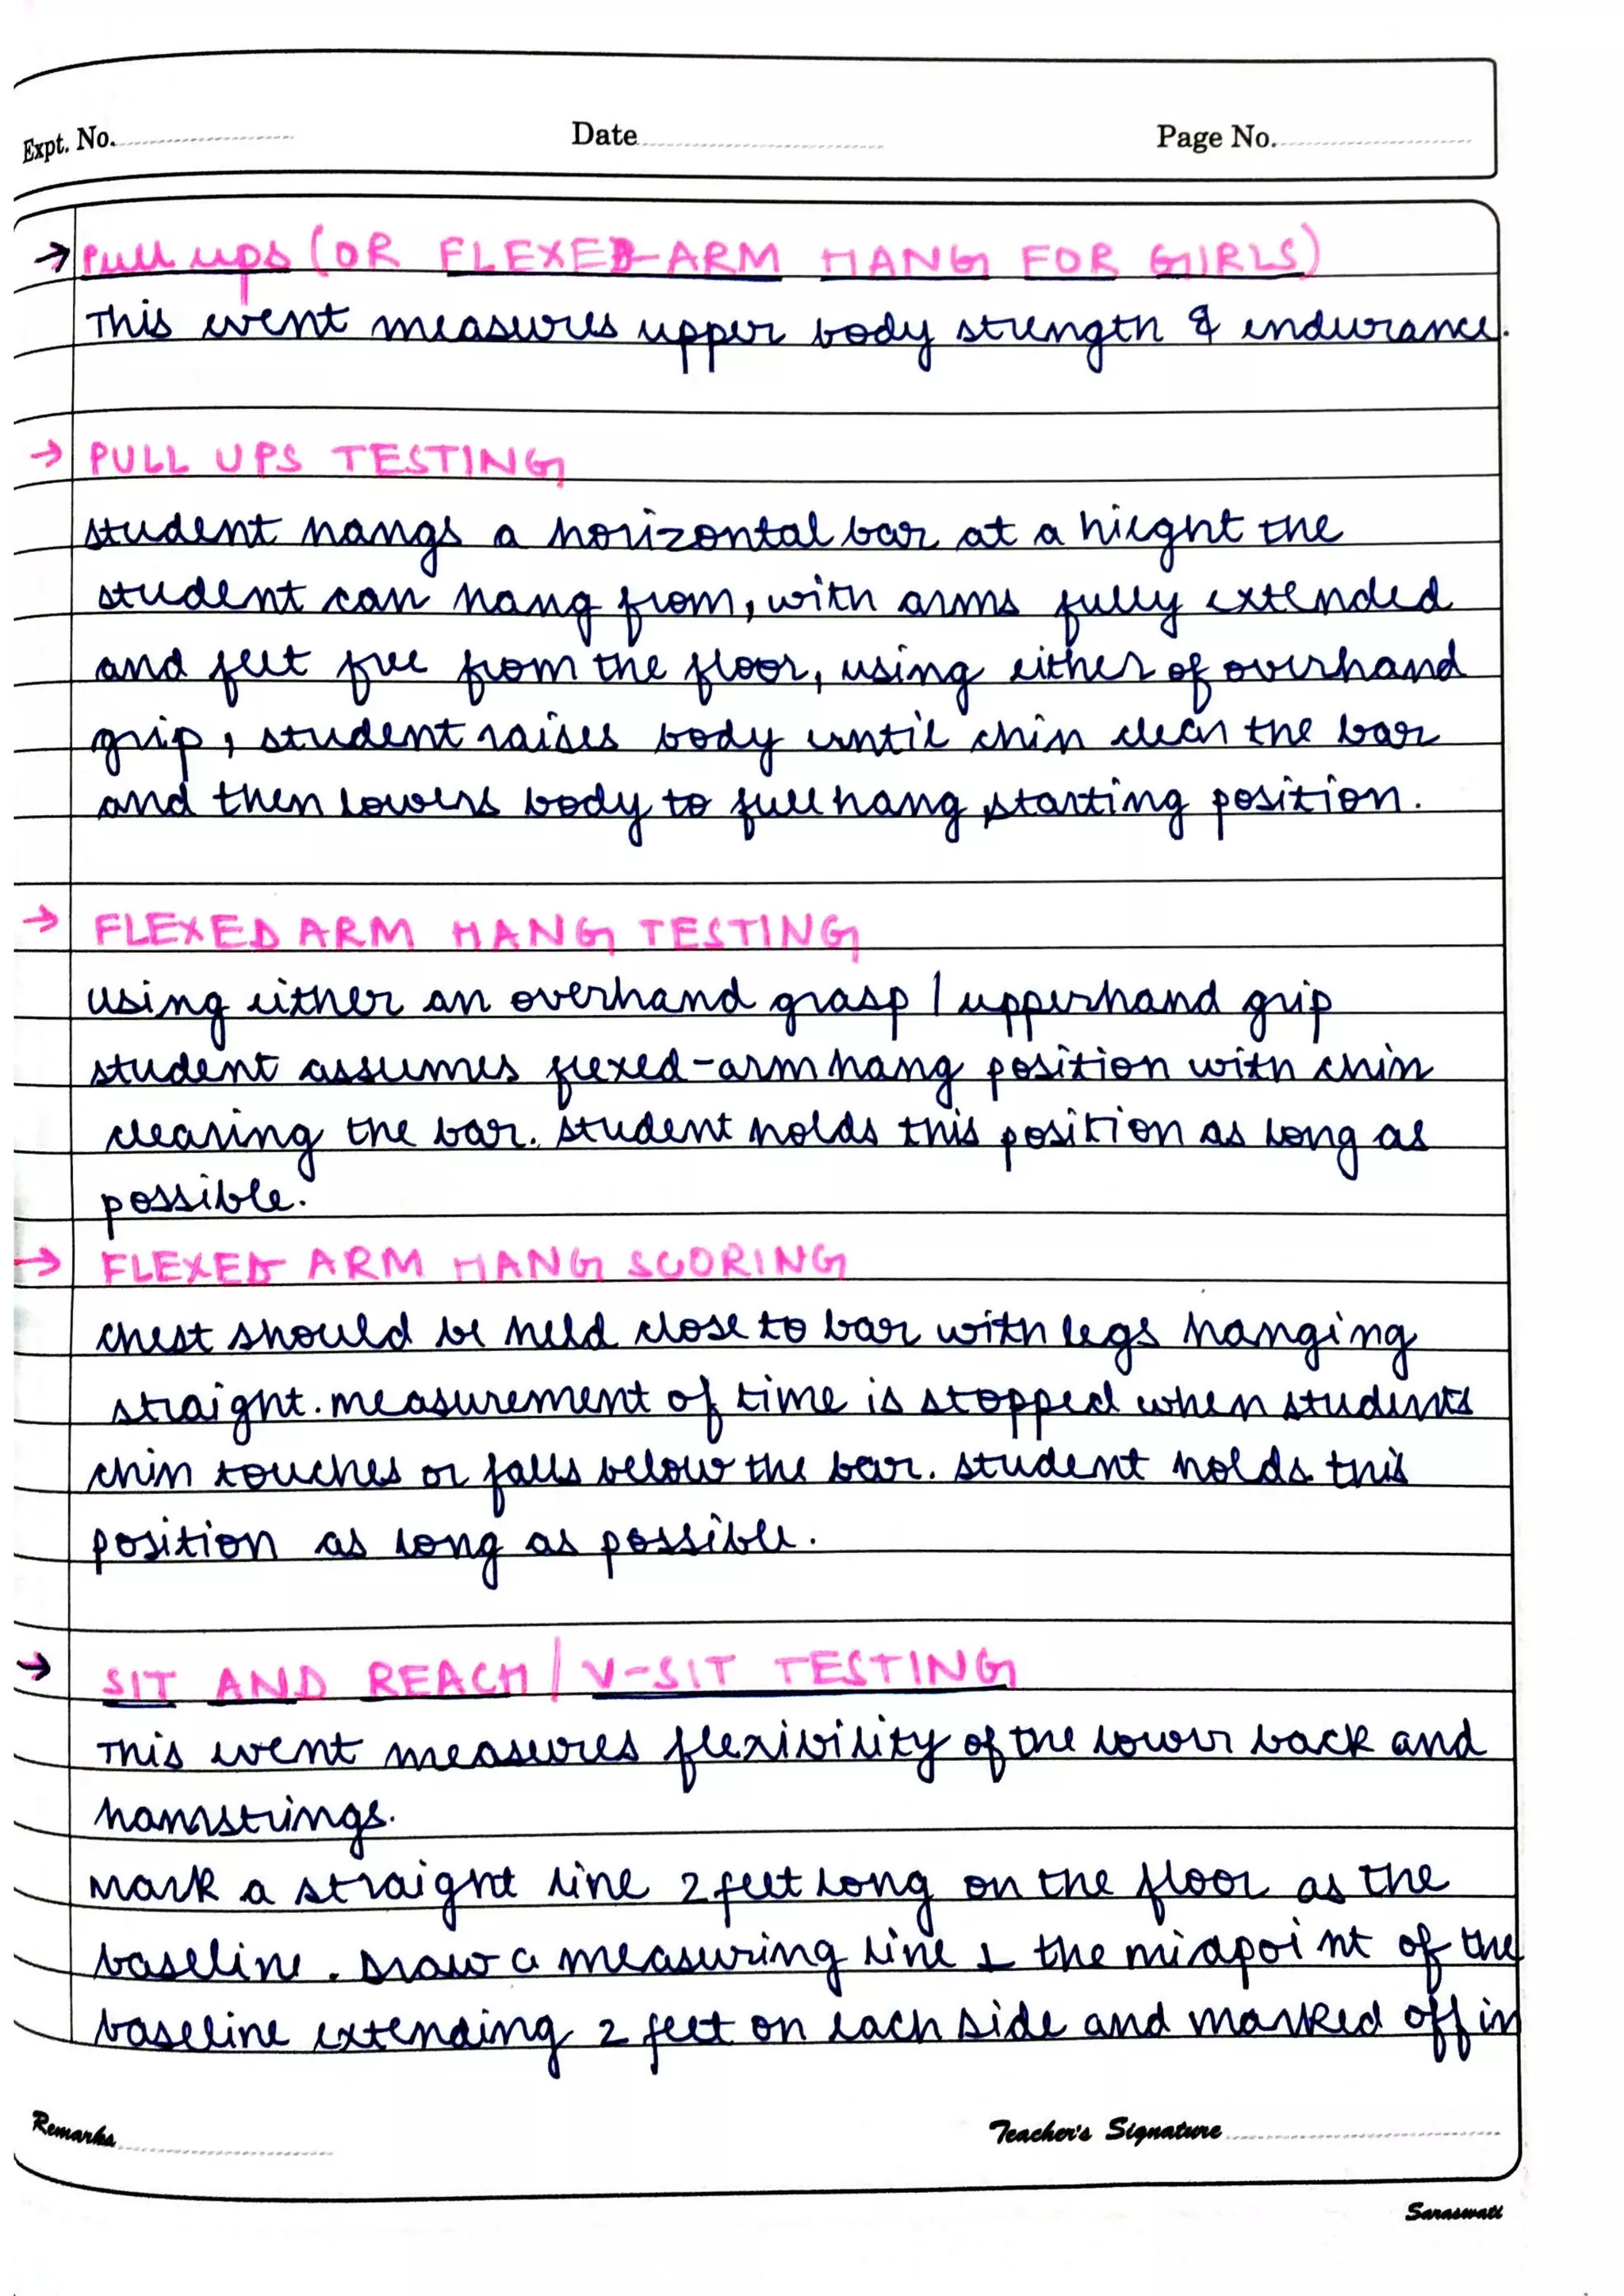 Expt. No. Date Page No.
→ Pull ups (OR FLEXED-ARM HANG FOR GIRLS)
This event measures upper body strength & endurance.
→ PULL UPS TESTING
student hangs a horizontal bar at a hieght the
student can hang from, with arms fully extended
and feet free from the floor, using either of overhand
grip, student raises body until chin clear the bar
and then lowers body to full hang starting position.
→ FLEXED ARM HANG TESTING
using either an overhand grasp / upperhand grip
student assumes flexed-arm hang position with chin
clearing the bar. student holds this position as long as
possible.
→ FLEXED ARM HANG SCORING
chest should be held close to bar with legs hanging
straight. measurement of time is stopped when students
chin touches or falls below the bar. student holds this
position as long as possible.
→ SIT AND REACH / V-SIT TESTING
This event measures flexibility of the lower back and
hamstrings.
Mark a straight line 2 feet long on the floor as the
baseline. Draw a measuring line ⊥ the midpoint of the
baseline extending 2 feet on each side and marked off in
Remarks Teacher's Signature
Saraswati